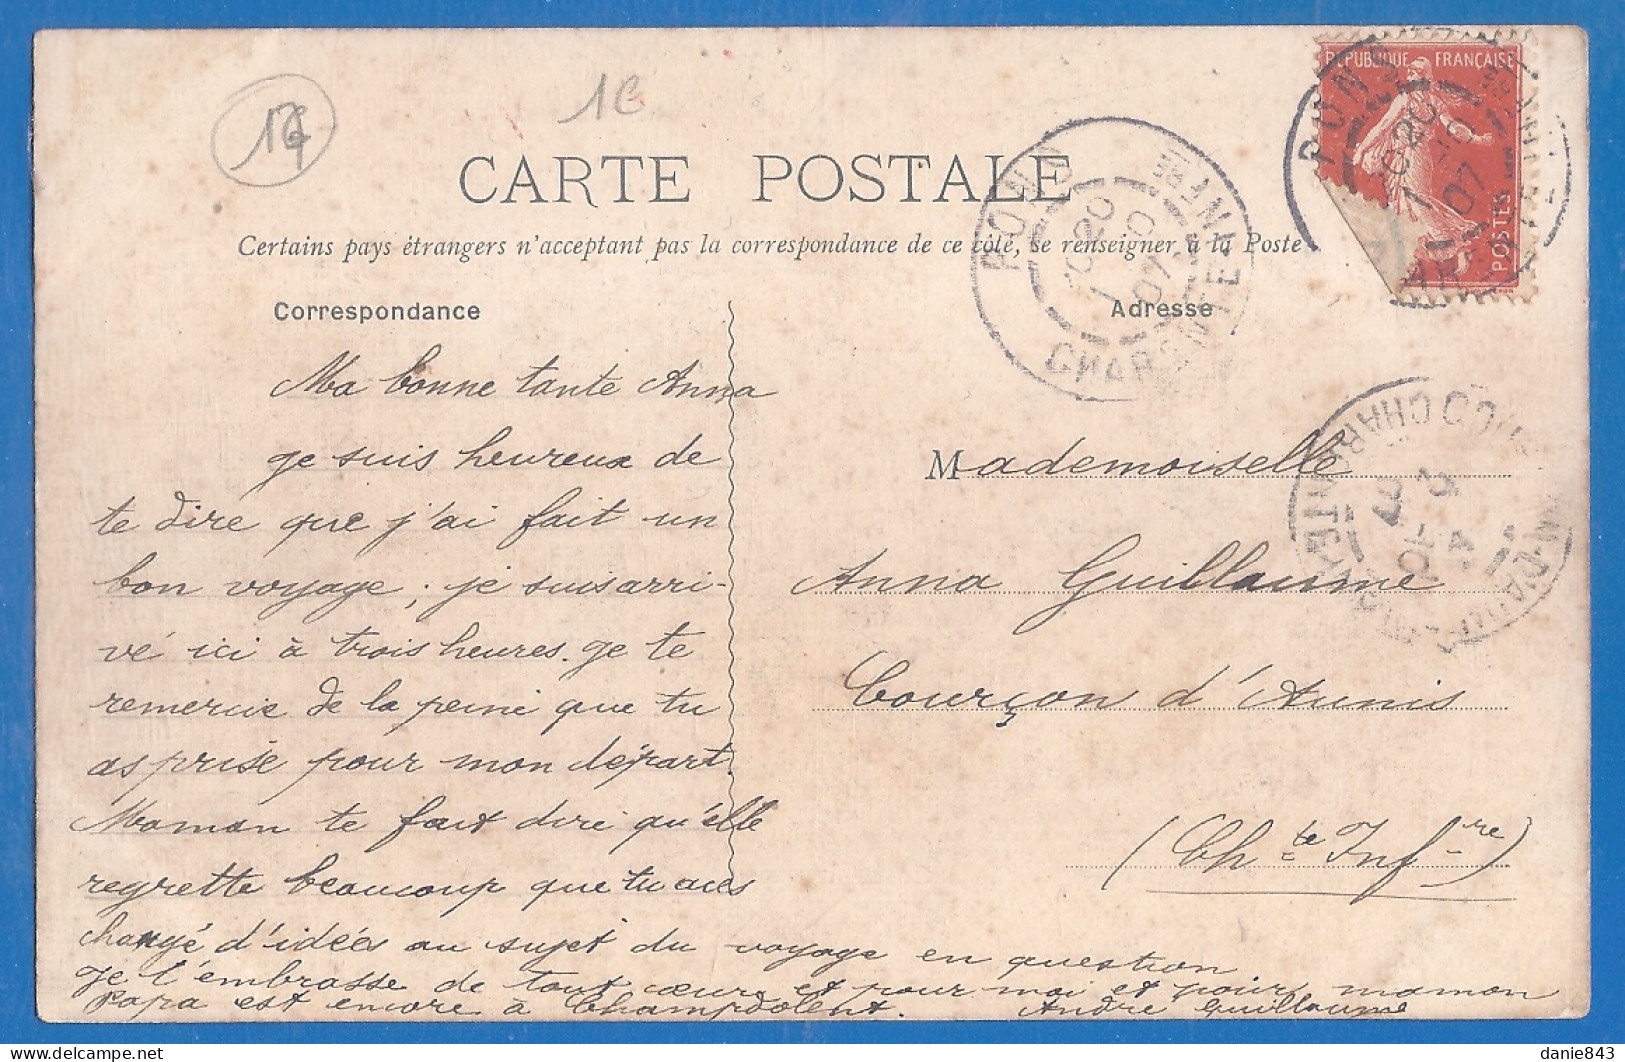 17
1€
CARTE POSTALE
Certains pays étrangers n'acceptant pas la correspondance de ce côté, se renseigner à la Poste
REPUBLIQUE FRANÇAISE
POSTES
PONS
16 20
1 - 10
07
CHARENTE-INFRE
PONS
16 20
1 - 10
07
CHARENTE-INFRE
Correspondance
Adresse
Ma bonne tante Anna
Je suis heureux de
te dire que j'ai fait un
bon voyage ; je suis arri-
vé ici à trois heures. Je te
remercie de la peine que tu
as prise pour mon départ.
Maman te fait dire qu'elle
regrette beaucoup que tu aies
changé d'idées au sujet du voyage en question
Je t'embrasse de tout cœur et pour moi et pour maman
Papa est encore à Champdolent. André Guillaume
Mademoiselle
Anna Guillaume
Courçon d'Aunis
(Ch te Inf re)
danie843